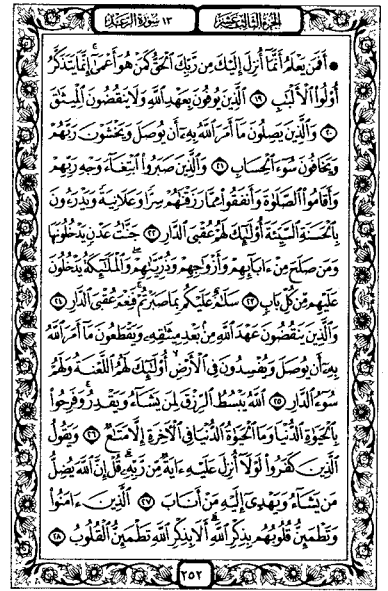 الجزء الثالث عشر
١٣ سورة الرعد
۞ أَفَمَن يَعْلَمُ أَنَّمَا أُنزِلَ إِلَيْكَ مِن رَّبِّكَ ٱلْحَقُّ كَمَنْ هُوَ أَعْمَىٰٓ ۚ إِنَّمَا يَتَذَكَّرُ
أُو۟لُوا۟ ٱلْأَلْبَٰبِ ١٩ ٱلَّذِينَ يُوفُونَ بِعَهْدِ ٱللَّهِ وَلَا يَنقُضُونَ ٱلْمِيثَٰقَ
٢٠ وَٱلَّذِينَ يَصِلُونَ مَآ أَمَرَ ٱللَّهُ بِهِۦٓ أَن يُوصَلَ وَيَخْشَوْنَ رَبَّهُمْ
وَيَخَافُونَ سُوٓءَ ٱلْحِسَابِ ٢١ وَٱلَّذِينَ صَبَرُوا۟ ٱبْتِغَآءَ وَجْهِ رَبِّهِمْ
وَأَقَامُوا۟ ٱلصَّلَوٰةَ وَأَنفَقُوا۟ مِمَّا رَزَقْنَٰهُمْ سِرًّا وَعَلَانِيَةً وَيَدْرَءُونَ
بِٱلْحَسَنَةِ ٱلسَّيِّئَةَ أُو۟لَٰٓئِكَ لَهُمْ عُقْبَى ٱلدَّارِ ٢٢ جَنَّٰتُ عَدْنٍ يَدْخُلُونَهَا
وَمَن صَلَحَ مِنْ ءَابَآئِهِمْ وَأَزْوَٰجِهِمْ وَذُرِّيَّٰتِهِمْ ۖ وَٱلْمَلَٰٓئِكَةُ يَدْخُلُونَ
عَلَيْهِم مِّن كُلِّ بَابٍ ٢٣ سَلَٰمٌ عَلَيْكُم بِمَا صَبَرْتُمْ ۚ فَنِعْمَ عُقْبَى ٱلدَّارِ ٢٤
وَٱلَّذِينَ يَنقُضُونَ عَهْدَ ٱللَّهِ مِنۢ بَعْدِ مِيثَٰقِهِۦ وَيَقْطَعُونَ مَآ أَمَرَ ٱللَّهُ
بِهِۦٓ أَن يُوصَلَ وَيُفْسِدُونَ فِى ٱلْأَرْضِ ۙ أُو۟لَٰٓئِكَ لَهُمُ ٱللَّعْنَةُ وَلَهُمْ
سُوٓءُ ٱلدَّارِ ٢٥ ٱللَّهُ يَبْسُطُ ٱلرِّزْقَ لِمَن يَشَآءُ وَيَقْدِرُ ۚ وَفَرِحُوا۟
بِٱلْحَيَوٰةِ ٱلدُّنْيَا وَمَا ٱلْحَيَوٰةُ ٱلدُّنْيَا فِى ٱلْـَٔاخِرَةِ إِلَّا مَتَٰعٌ ٢٦ وَيَقُولُ
ٱلَّذِينَ كَفَرُوا۟ لَوْلَآ أُنزِلَ عَلَيْهِ ءَايَةٌ مِّن رَّبِّهِۦ ۗ قُلْ إِنَّ ٱللَّهَ يُضِلُّ
مَن يَشَآءُ وَيَهْدِىٓ إِلَيْهِ مَنْ أَنَابَ ٢٧ ٱلَّذِينَ ءَامَنُوا۟
وَتَطْمَئِنُّ قُلُوبُهُم بِذِكْرِ ٱللَّهِ ۗ أَلَا بِذِكْرِ ٱللَّهِ تَطْمَئِنُّ ٱلْقُلُوبُ ٢٨
٢٥٢